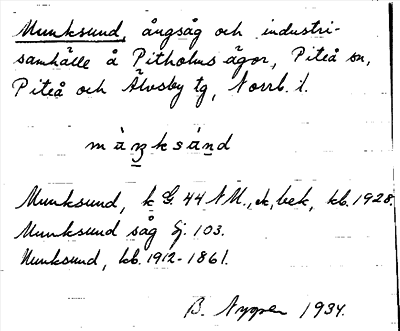 Munksund, ångsåg och industri-
samhälle å Pitholms ägor, Piteå sn,
Piteå och Älvsby tg, Norrb. l.
Munksund, k G. 44 NM., ek, bek, kb. 1928.
Munksund såg Gj. 103.
Munksund, kb. 1912-1861.
B. Nygren 1934.